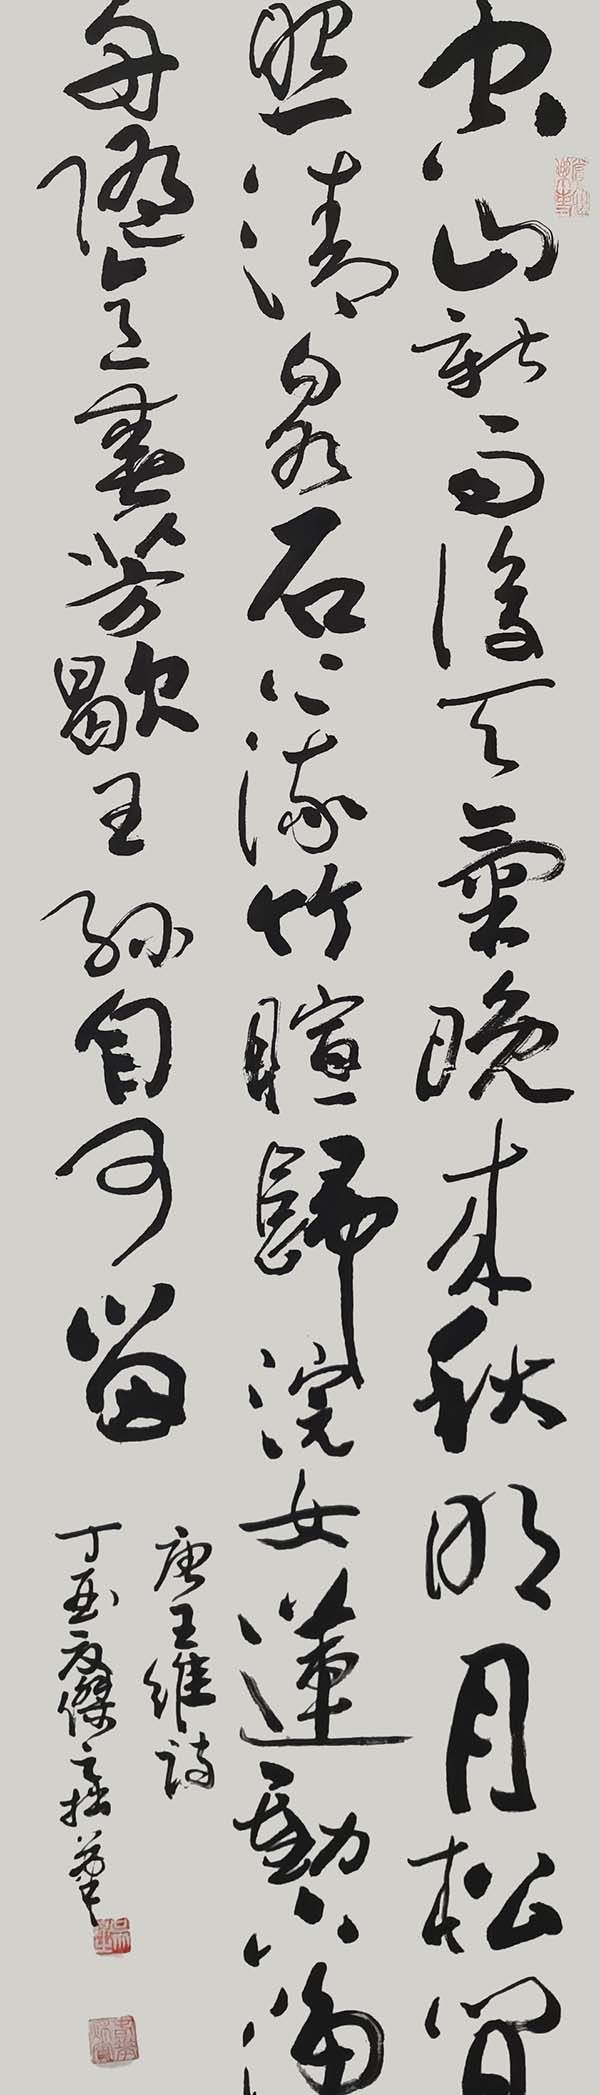 空山新雨後天氣晚來秋明月松間
照清泉石上流竹暄歸浣女蓮動下漁
舟隨意春芳歇王孫自可留
唐王維詩
丁酉友傑之拙筆